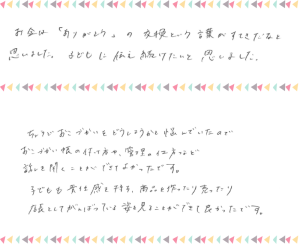 お金は「ありがとう」の交換という言葉がすてきだなと
思いました。子どもに伝え続けたいと思いました。
ちょうどおこづかいをどうしようかと悩んでいたので
おこづかい帳の付け方や、管理の仕方など
話を聞くことができてよかったです。
子どもも責任感を持ち、商品を作ったり売ったり
店長としてがんばっている姿を見ることができて良かったです。